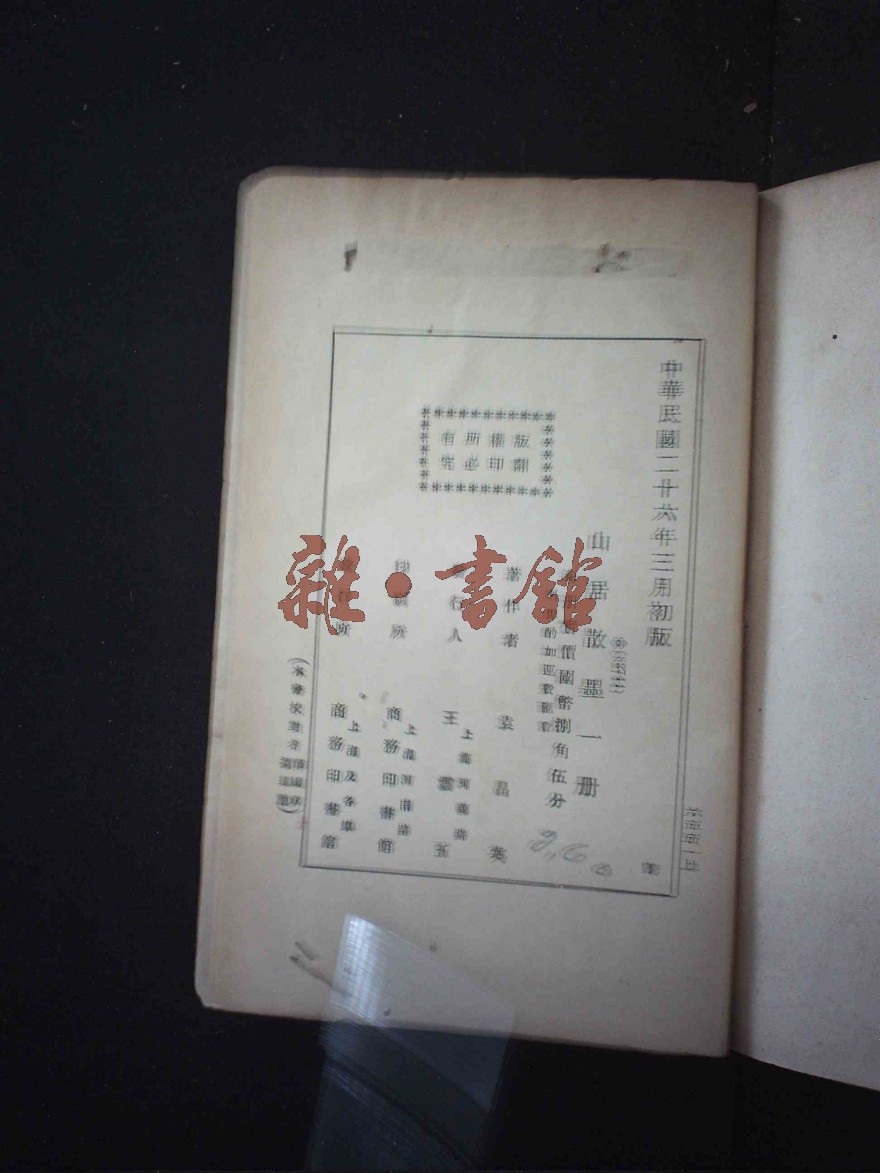 中華民國二十六年三月初版
山居散墨一册
每册實價國幣捌角伍分
外埠酌加運費匯費
著作者 袁昌英
發行人 王雲五
上海河南路
印刷所 商務印書館
上海河南路
發行所 商務印書館
上海及各埠
版權所有
翻印必究
雜·書館